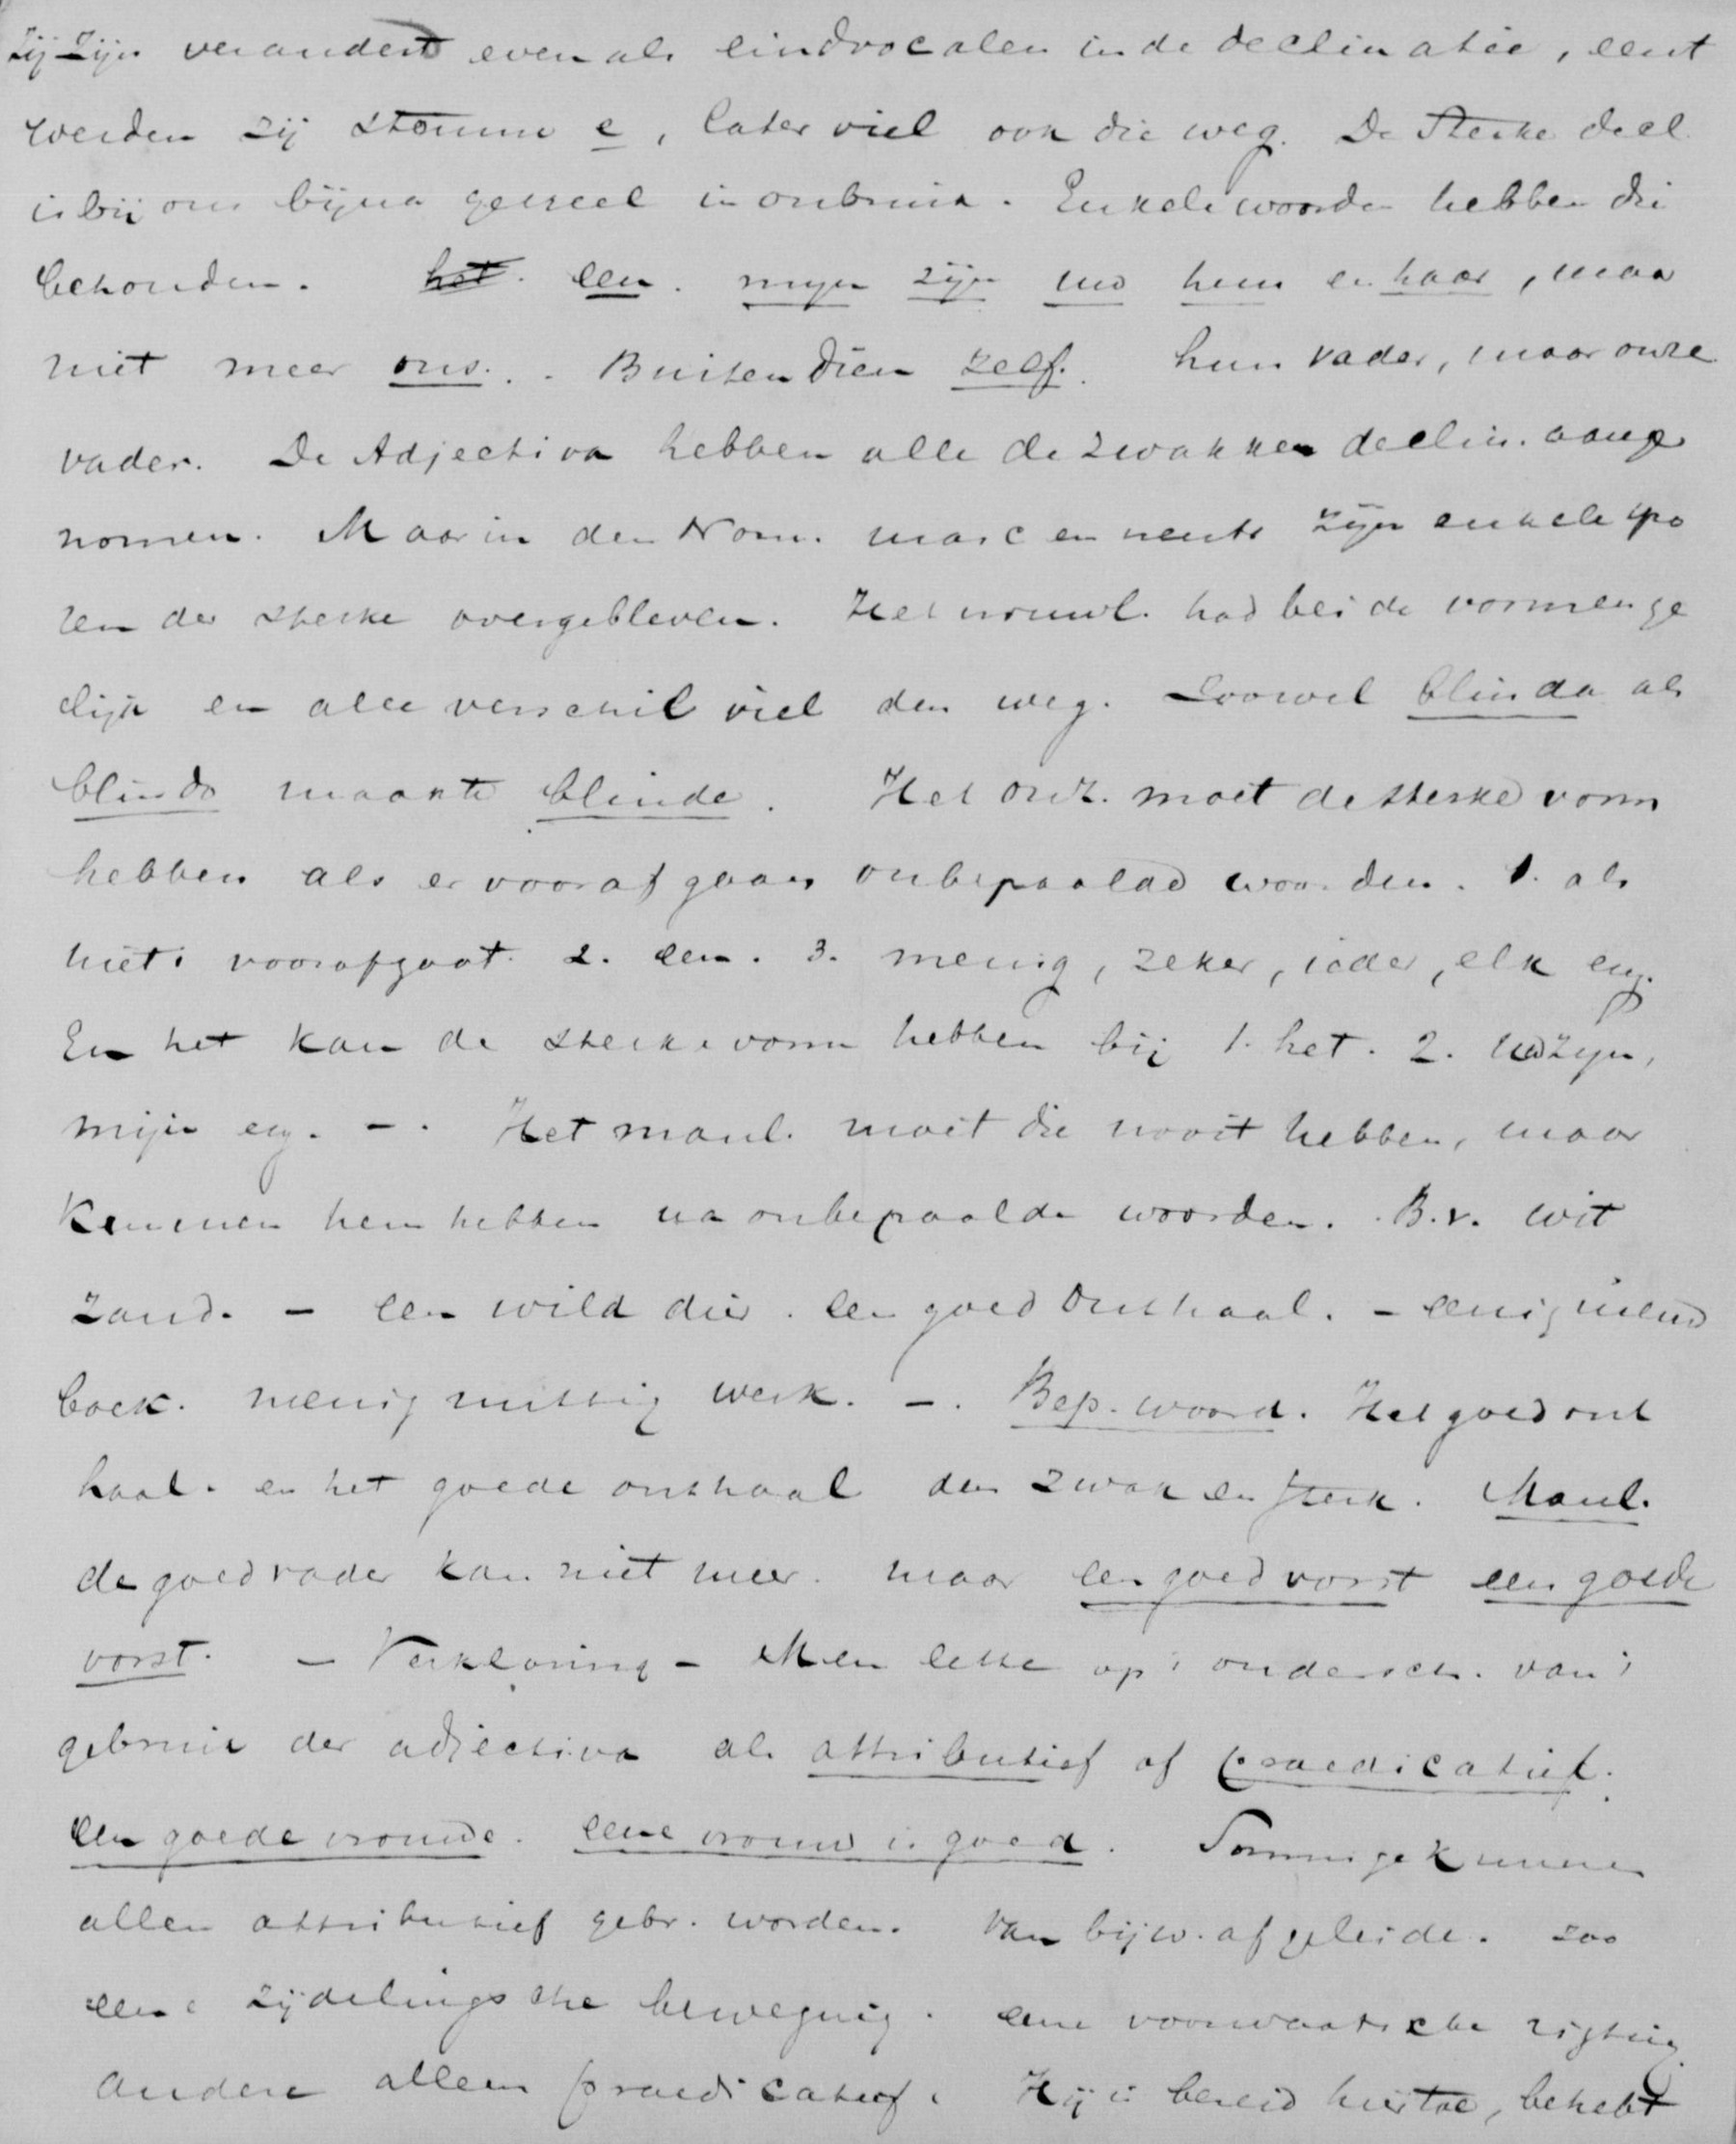 zij zijn veranderd even als eindvocalen in de declinatie, eerst
werden zij stomme e, later viel ook die weg. De sterke decl.
is bij ons bijna geheel in onbruik. Enkele woorden hebben die
behouden. het. een. mijn zijn uw hun en haar, maar
niet meer ons. . Buitendien zelf. hun vader, maar onze
vader. De Adjectiva hebben alle de zwakken declin. aange
nomen. Maar in den Nom. masc en neutr zijn enkele spo
ren der sterke overgebleven. Het vrouwl. had beide vormen ge
lijk en alle verschil viel dan weg. Zoowel blinda als
blindo maakte blinde. Het onz. moet de sterke vorm
hebben als er voorafgaan onbepaalde woorden. 1. als
niets voorafgaat. 2. een. 3. menig, zeker, ieder, elk enz.
En het kan de sterke vorm hebben bij 1. het. 2. uw zijn,
mijn enz. - . Het manl. moet die nooit hebben, maar
kunnen hem hebben na onbepaalde woorden. B.v. wit
zand. - een wild dier. een goed onthaal. - eenig
boek. menig nuttig werk. - . Bep. woord. Het goed ont
haal. en het goede onthaal dus zwak en sterk. Manl.
de goed vader kan niet meer. maar een goed vorst een goede
vorst. - Verklaring - Men lette op 't ondersch. van 't
gebruik der adjectiva als attributief of praedicatief.
een goede vrouwe. eene vrouw is goed. Sommige kunnen
alleen attributief gebr. worden. Van bijw. afgeleide. zoo
eene zijdelingsche beweging. eene voorwaartsche rigting
Andere alleen praedicatief. Hij is bereid hiertoe, behebt